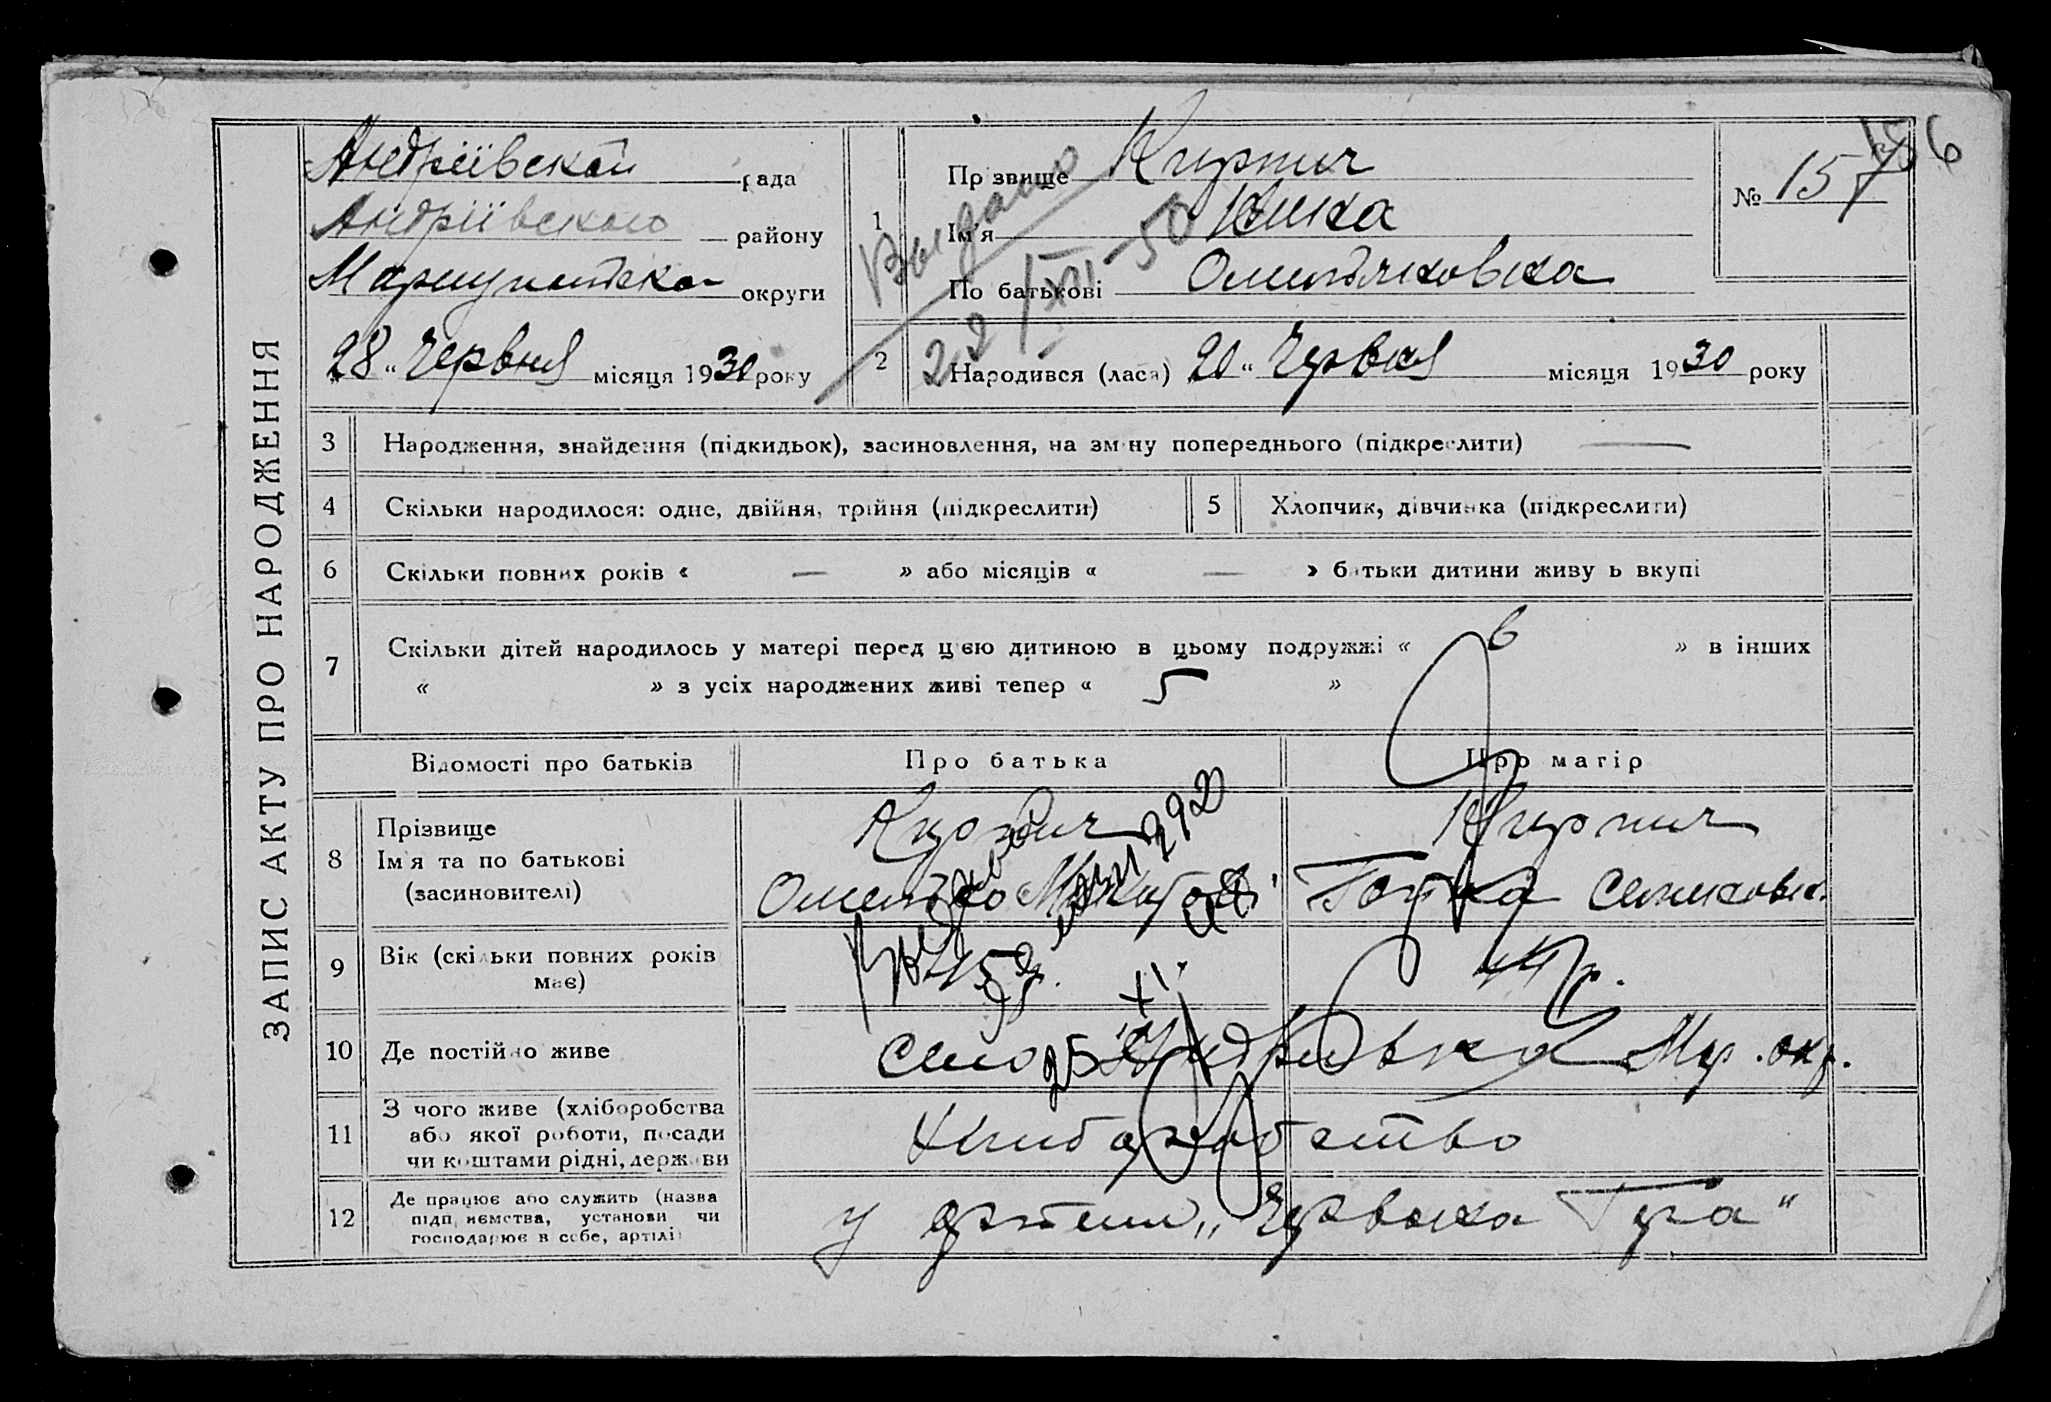 ЗАПИС АКТУ ПРО НАРОДЖЕННЯ
Андріївской рада
Андріївского району
округи
28 „ Червня місяця 1930 року
Выдано
22/XII-50
1
Прізвище Кирпич
Ім'я
По батькові
№ 157
2
Народився (лася) 20 „ Червня місяця 1930 року
3 Народження, знайдення (підкидьок), засиновлення, на зміну попереднього (підкреслити) —
4 Скільки народилося: одне, двійня, трійня (підкреслити)
5 Хлопчик, дівчинка (підкреслити)
6 Скільки повних років « — » або місяців « — » батьки дитини живуть вкупі
7 Скільки дітей народилось у матері перед цією дитиною в цьому подружжі « 6 » в інших
« » з усіх народжених живі тепер « 5 »
Відомості про батьків
Про батька
Про матір
8 Прізвище
Ім'я та по батькові
(засиновителі)
Кирпич
Омелько
Кирпич
9 Вік (скільки повних років
має)
45 р.
44 р.
10 Де постійно живе
село Андріївка Мар. окр.
11 З чого живе (хліборобства
або якої роботи, посади
чи коштами рідні, держави
Хліборобство
12 Де працює або служить (назва
підприємства, установи чи
господарює в себе, артілі)
у артели „Червона Гора"